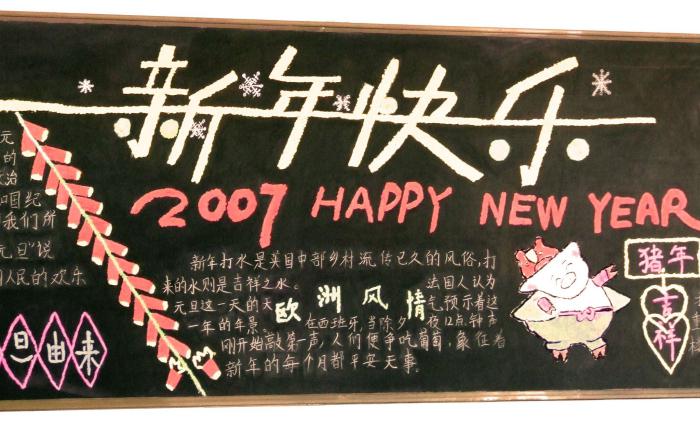 新年快乐
2007 HAPPY NEW YEAR
元
的
治
和国纪
我们所
元旦"说
人民的欢乐
旦由来
新年打水是英国中部乡村流传已久的风俗,打
来的水则是吉祥之水。 法国人认为
元旦这一天的天 气预示着这
欧洲风情
一年的年景。 在西班牙,当除夕夜12点钟声
刚开始敲第一声,人们便争吃葡萄,象征着
新年的每个月都平安无事.
猪年
吉祥